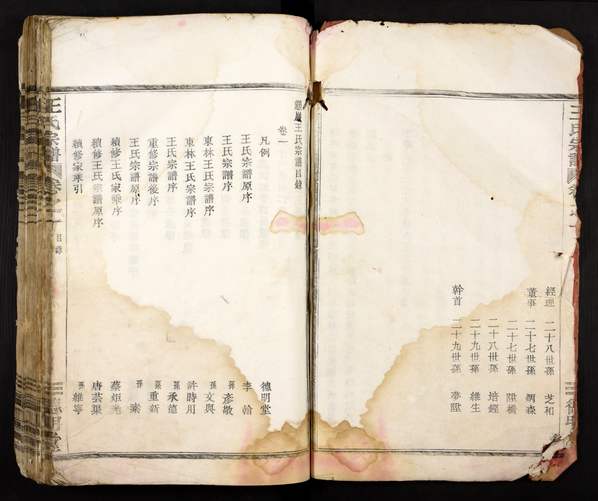 經理 二十八世孫 芝和
董事 二十七世孫
二十七世孫
二十八世孫 培經
二十九世孫 維生
幹首 二十九世孫
王氏宗譜目錄
卷一
凡例 德明堂
王氏宗譜原序 李
東林王氏宗譜序 孫 彥敬
東林王氏宗譜序 孫 文興
王氏宗譜序 許時用
重修宗譜後序 孫 承德
王氏宗譜原序 孫 重新
續修王氏家乘序 孫
續修王氏宗譜原序 蔡
續修家乘引 唐
孫 維寧
王氏宗譜
卷之一
目錄
德明堂
王氏宗譜
卷之一